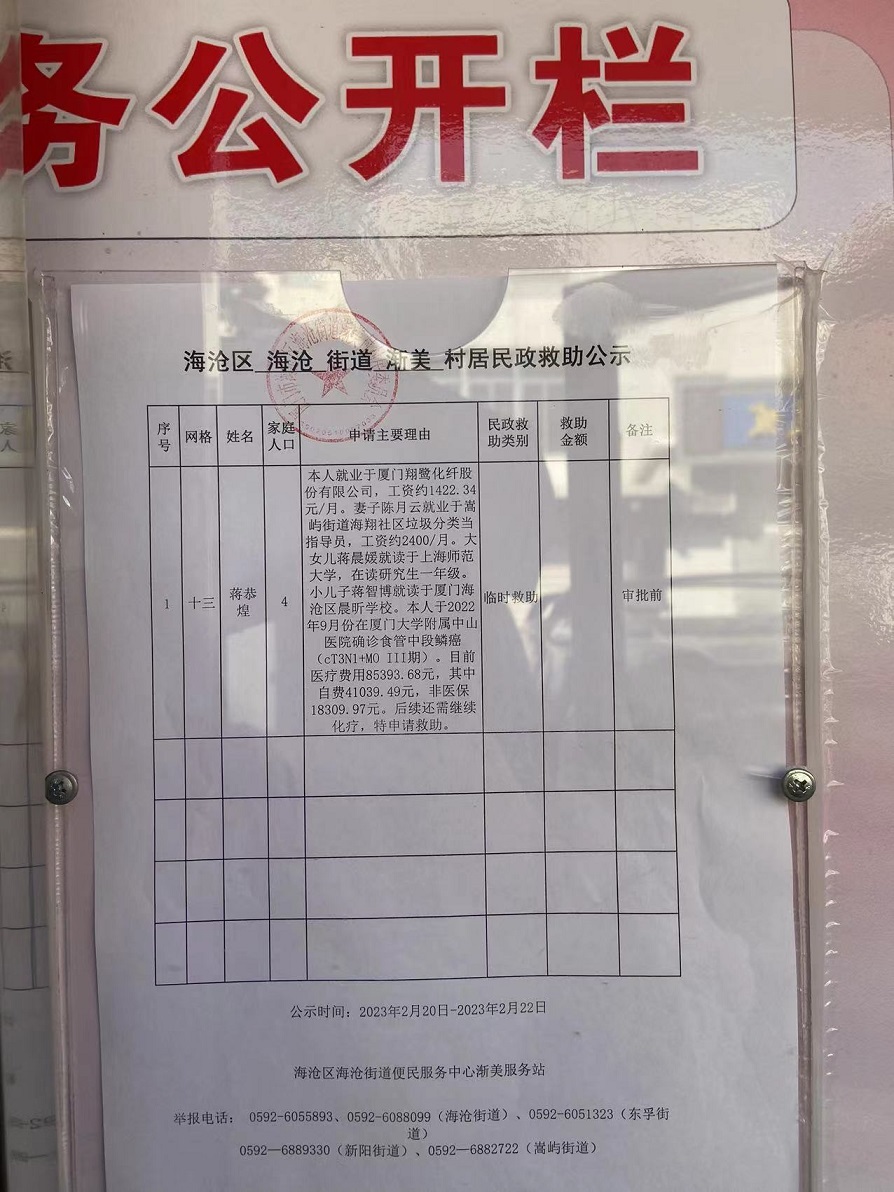 务公开栏
海沧区 海沧 街道 渐美 村居民政救助公示
序号 网格 姓名 家庭人口 申请主要理由 民政救助类别 救助金额 备注
1 十三 蒋恭煌 4
本人就业于厦门翔鹭化纤股
份有限公司，工资约1422.34
元/月。妻子陈月云就业于嵩
屿街道海翔社区垃圾分类当
指导员，工资约2400/月。大
女儿蒋晨媛就读于上海师范
大学，在读研究生一年级。
小儿子蒋智博就读于厦门海
沧区晨昕学校。本人于2022
年9月份在厦门大学附属中山
医院确诊食管中段鳞癌
（cT3N1+MO III期）。目前
医疗费用85393.68元，其中
自费41039.49元，非医保
18309.97元。后续还需继续
化疗，特申请救助。
临时救助
审批前
公示时间：2023年2月20日-2023年2月22日
海沧区海沧街道便民服务中心渐美服务站
举报电话： 0592-6055893、0592-6088099（海沧街道）、0592-6051323（东孚街
道）
0592—6889330（新阳街道）、0592—6882722（嵩屿街道）